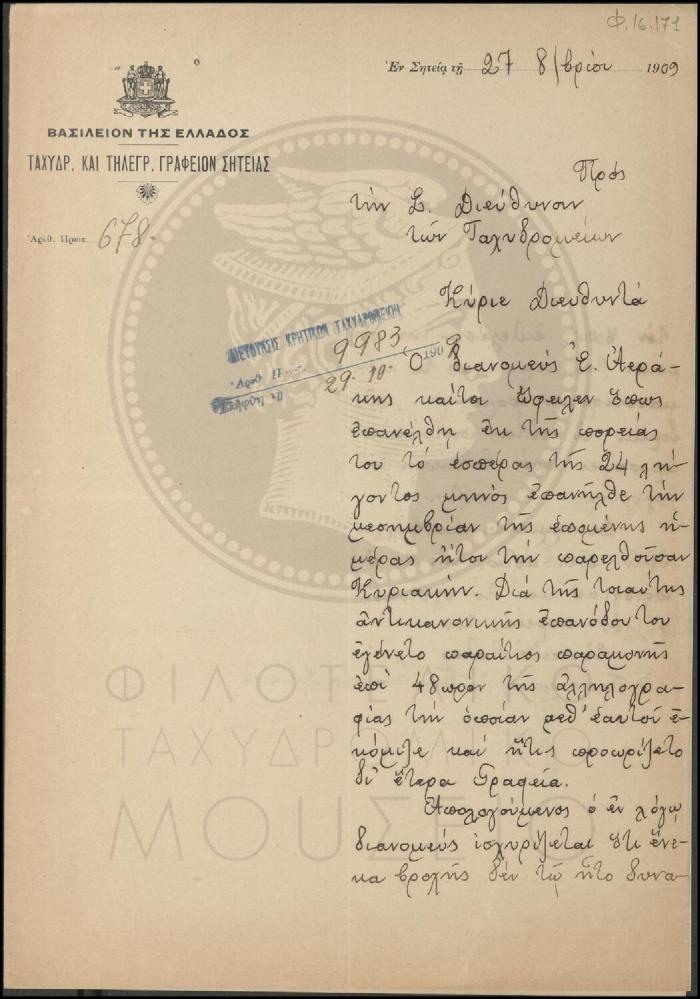 Φ.16.171
Ἐν Σητείᾳ τῇ 27 8/βρίου 1909
ΒΑΣΙΛΕΙΟΝ ΤΗΣ ΕΛΛΑΔΟΣ
ΤΑΧΥΔΡ. ΚΑΙ ΤΗΛΕΓΡ. ΓΡΑΦΕΙΟΝ ΣΗΤΕΙΑΣ
Ἀριθ. Πρωτ. 678
Πρὸς
τὴν Σ. Διεύθυνσιν
τῶν Ταχυδρομείων
Κύριε Διευθυντά
ΔΙΕΥΘΥΝΣΙΣ ΚΡΗΤΙΚΩΝ ΤΑΧΥΔΡΟΜΕΙΩΝ
9983
29-10- 1909
Ὁ διανομεὺς Ἐ. Ἀερά-
κης καίτοι ὤφειλεν ὅπως
ἐπανέλθῃ ἐκ τῆς πορείας
του τὸ ἑσπέρας τῆς 24 λή-
γοντος μηνὸς ἐπανῆλθε τὴν
μεσημβρίαν τῆς ἑπομένης ἡ-
μέρας ἤτοι τὴν παρελθοῦσαν
Κυριακήν. Διὰ τῆς τοιαύτης
ἀντικανονικῆς ἐπανόδου του
ἐγένετο παραίτιος παραμονῆς
ἐπὶ 48ωρον τῆς ἀλληλογρα-
φίας τὴν ὁποίαν μεθ' ἑαυτοῦ ἐ-
κόμιζε καὶ ἥτις προωρίζετο
δι' ἕτερα Γραφεῖα.
Ἀπολογούμενος ὁ ἐν λόγῳ
διανομεὺς ἰσχυρίζεται ὅτι ἕνε-
κα βροχῆς δὲν τῷ ἦτο δυνα-
ΦΙΛΟΤΕΛΙΚΟ
ΤΑΧΥΔΡΟΜΙΚΟ
ΜΟΥΣΕΙΟ